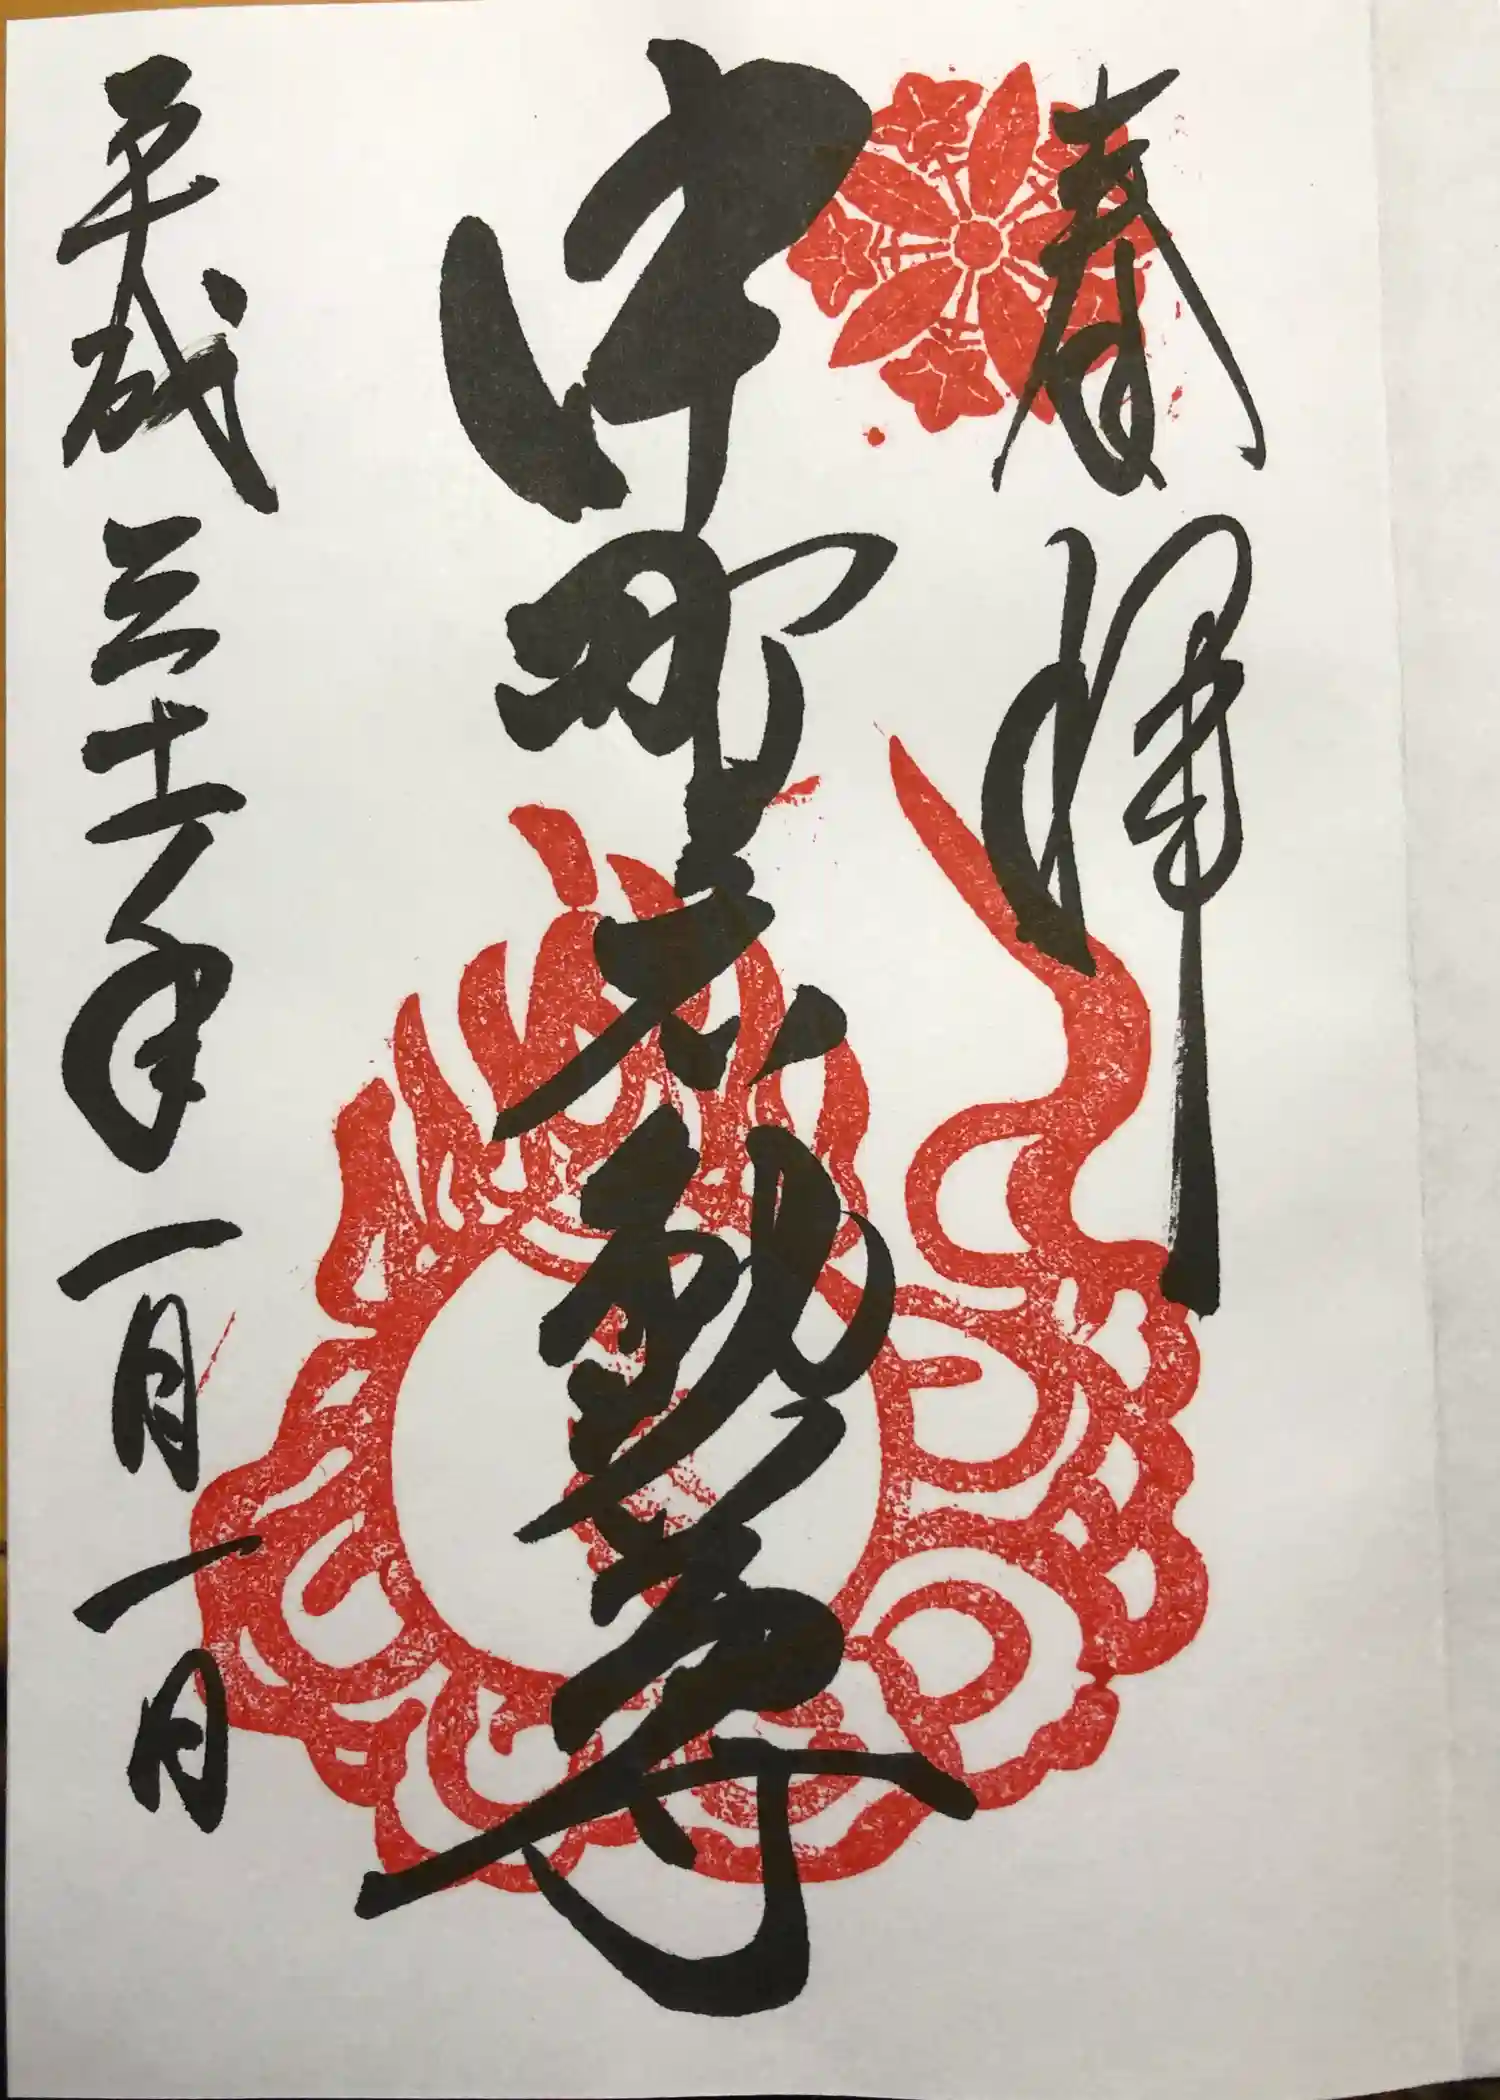 奉拝
中野不動尊
平成三十一年一月一日